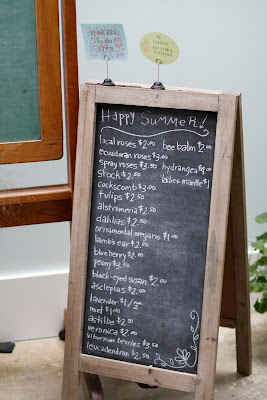 Happy Summer!
local roses $2.00
ecuadoran roses $3.00
spray roses $3.50
stock $2.00
cockscomb $3.00
tulips $2.50
alstromeria $2.50
dahlias $2.50
ornamental oregano $1.00
lamb's ear $2.00
blueberry $2.00
peony $3.50
black-eyed susan $2.00
asclepias $2.00
lavender $1/
mint $1.00
astilbe $2.50
veronica $2.00
viburnum berries $3.50
leucadendron $2.50
bee balm $2.00
hydrangea
ladies mantle $1